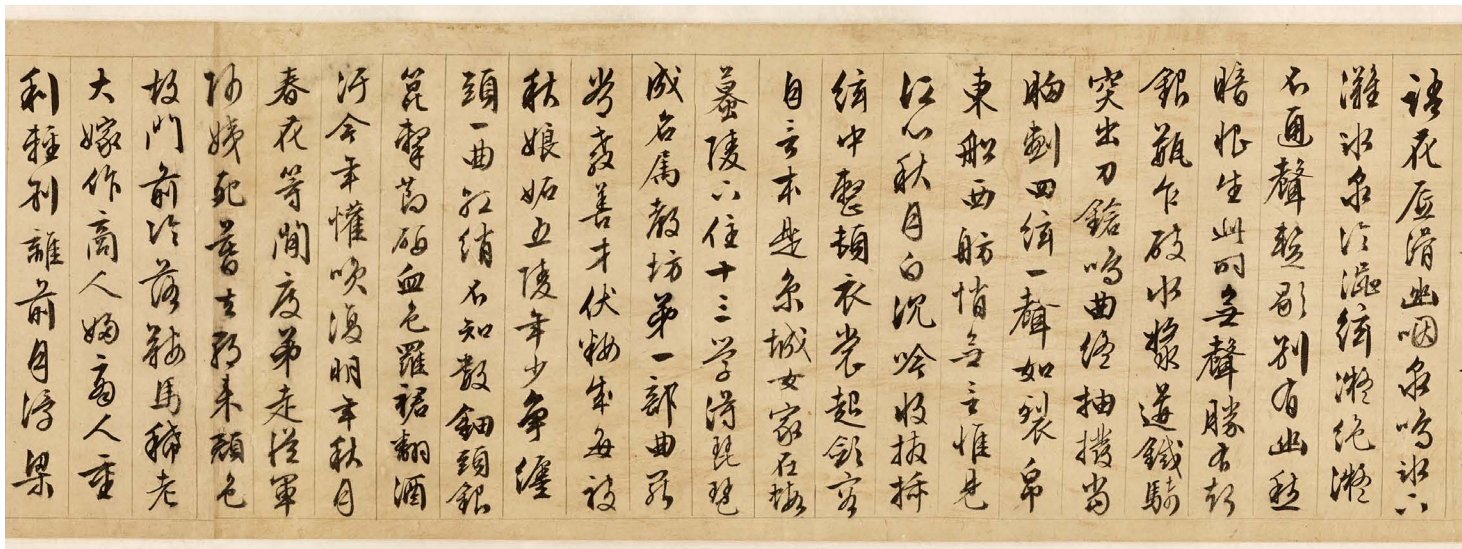 語花底滑幽咽泉鳴氷下
灘氷泉冷澁絃凝絶凝
不通聲暫歇別有幽愁
暗恨生此時無聲勝有聲
銀瓶乍破水漿迸鐵騎
突出刀鎗鳴曲終抽撥當
胸劃四絃一聲如裂帛
東船西舫悄無言惟見
江心秋月白沉吟收撥插
絃中整頓衣裳起斂容
自言本是京城女家在蝦
蟇陵下住十三学得琵琶
成名属教坊第一部曲罷
常教善才伏粧成每被
秋娘妬五陵年少爭纏
頭一曲紅綃不知數鈿頭銀
篦擊節碎血色羅裙翻酒
汙今年懽笑復明年秋月
春花等閒度弟走從軍
阿姨死暮去朝来顏色
故門前冷落鞍馬稀老
大嫁作商人婦商人重
利輕別離前月浮梁